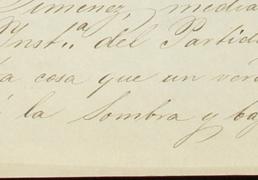 Jimenez, media
Inst.ª del Partid
a cosa que un ver
la sombra y ba